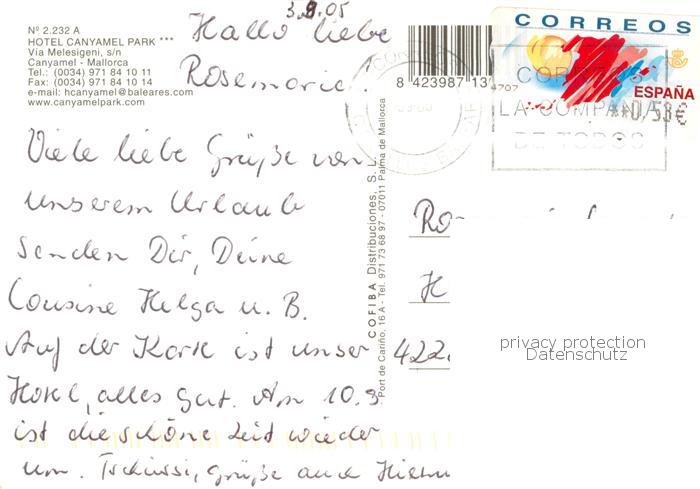 3.9.05
Nº 2.232 A
HOTEL CANYAMEL PARK ***
Via Melesigeni, s/n
Canyamel - Mallorca
Tel.: (0034) 971 84 10 11
Fax: (0034) 971 84 10 14
e-mail: hcanyamel@baleares.com
www.canyamelpark.com
Hallo liebe
Rosemarie
Viele liebe Grüße von
unserem Urlaub
senden Dir, Deine
Cousine Helga u. B.
Auf der Karte ist unser
Hotel, alles gut. Am 10.9
ist die schöne Zeit wieder
um. Tschüssi, Grüße auch
COFIBA Distribuciones, S. L.
Port de Cariño, 16 A - Tel. 971 73 68 97 - 07011 Palma de Mallorca
8 423987 13
4707
CORREOS
ESPAÑA
**0,53€
CORREOS
LA COMPAÑ
DE TODOS
Ro
H
422.
privacy protection
Datenschutz